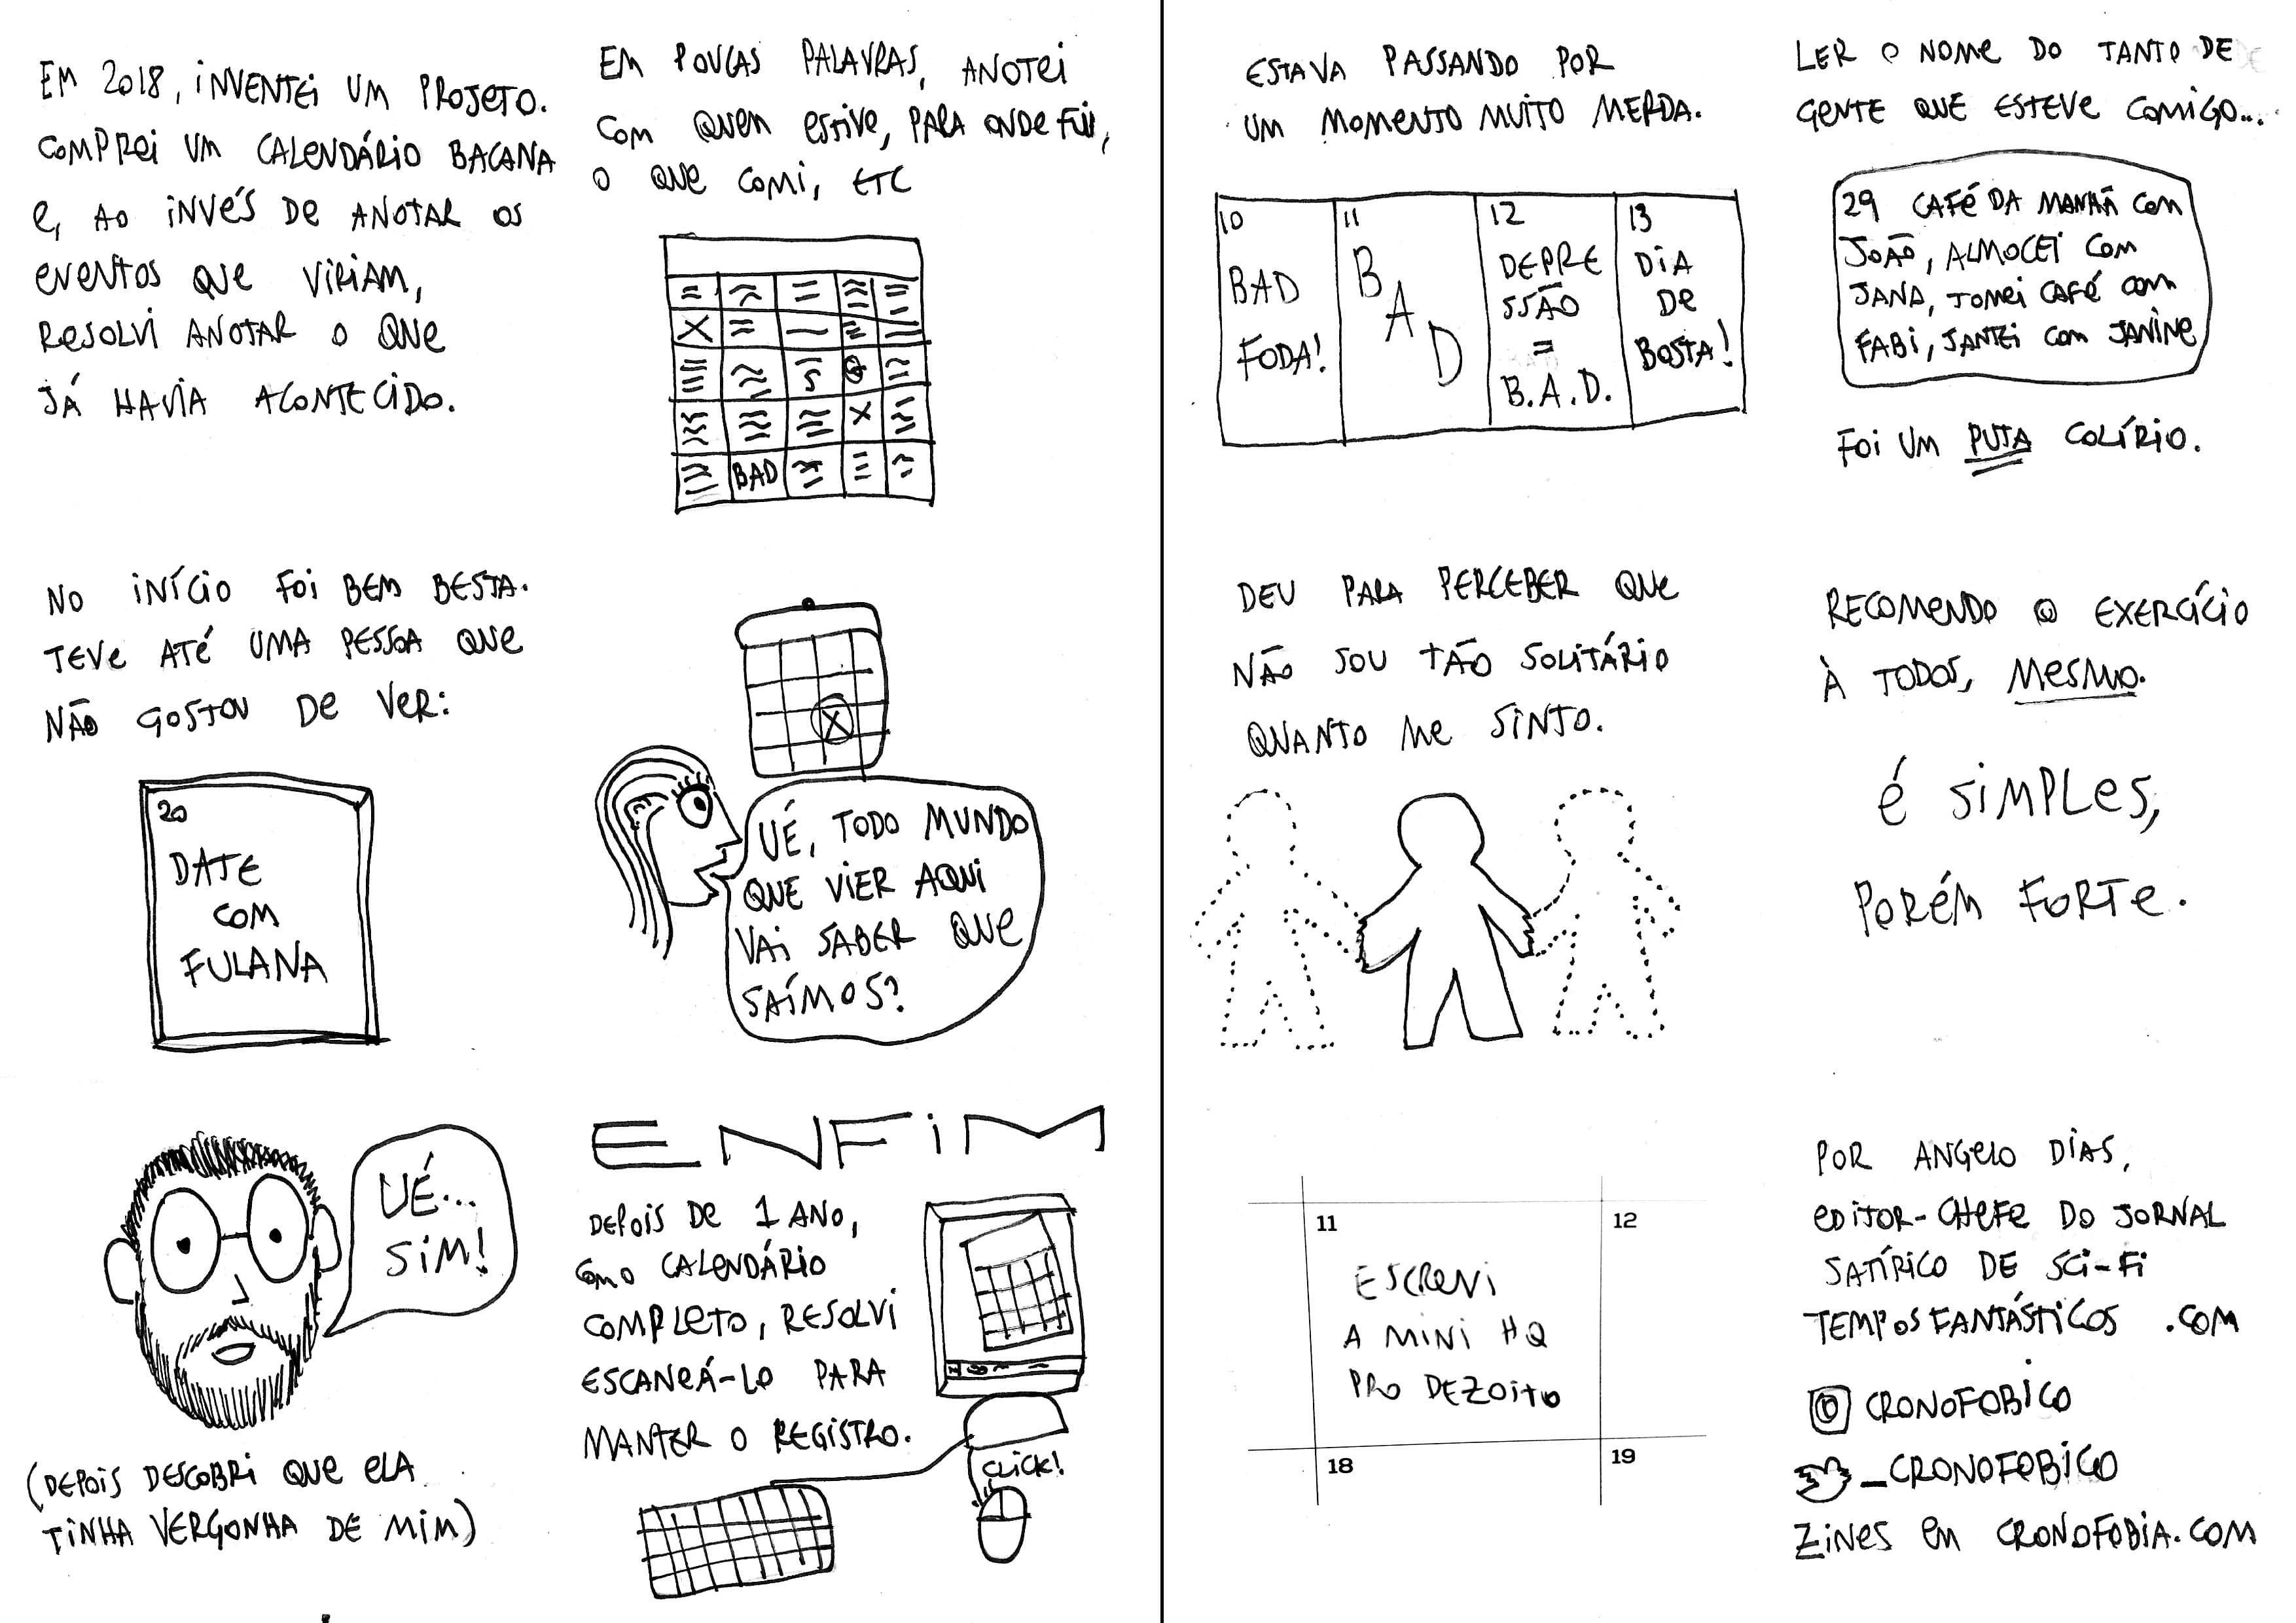 EM 2018, INVENTEI UM PROJETO.
COMPREI UM CALENDÁRIO BACANA
E, AO INVÉS DE ANOTAR OS
EVENTOS QUE VIRIAM,
RESOLVI ANOTAR O QUE
JÁ HAVIA ACONTECIDO.
EM POUCAS PALAVRAS, ANOTEI
COM QUEM ESTIVE, PARA ONDE FUI,
O QUE COMI, ETC
BAD
NO INÍCIO FOI BEM BESTA.
TEVE ATÉ UMA PESSOA QUE
NÃO GOSTOU DE VER:
20
DATE
COM
FULANA
X
UÉ, TODO MUNDO
QUE VIER AQUI
VAI SABER QUE
SAÍMOS?
UÉ...
SIM!
(DEPOIS DESCOBRI QUE ELA
TINHA VERGONHA DE MIM)
ENFIM
DEPOIS DE 1 ANO,
COM O CALENDÁRIO
COMPLETO, RESOLVI
ESCANEÁ-LO PARA
MANTER O REGISTRO.
CLICK!
ESTAVA PASSANDO POR
UM MOMENTO MUITO MERDA.
10
BAD
FODA!
11
BAD
12
DEPRE
SSÃO
=
B.A.D.
13
DIA
DE
BOSTA!
LER O NOME DO TANTO DE
GENTE QUE ESTEVE COMIGO...
29 CAFÉ DA MANHÃ COM
JOÃO, ALMOCEI COM
JANA, TOMEI CAFÉ COM
FABI, JANTEI COM JANINE
FOI UM PUTA COLÍRIO.
DEU PARA PERCEBER QUE
NÃO SOU TÃO SOLITÁRIO
QUANTO ME SINTO.
RECOMENDO O EXERCÍCIO
À TODOS, MESMO.
É SIMPLES,
PORÉM FORTE.
11
12
ESCREVI
A MINI HQ
PRO DEZOITO
18
19
POR ANGELO DIAS,
EDITOR-CHEFE DO JORNAL
SATÍRICO DE SCI-FI
TEMPOSFANTÁSTICOS.COM
CRONOFOBICO
_CRONOFOBICO
ZINES EM CRONOFOBIA.COM